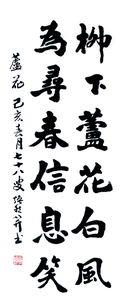 柳下蘆花白風
為尋春信息笑
蘆花 己亥春月七十八叟